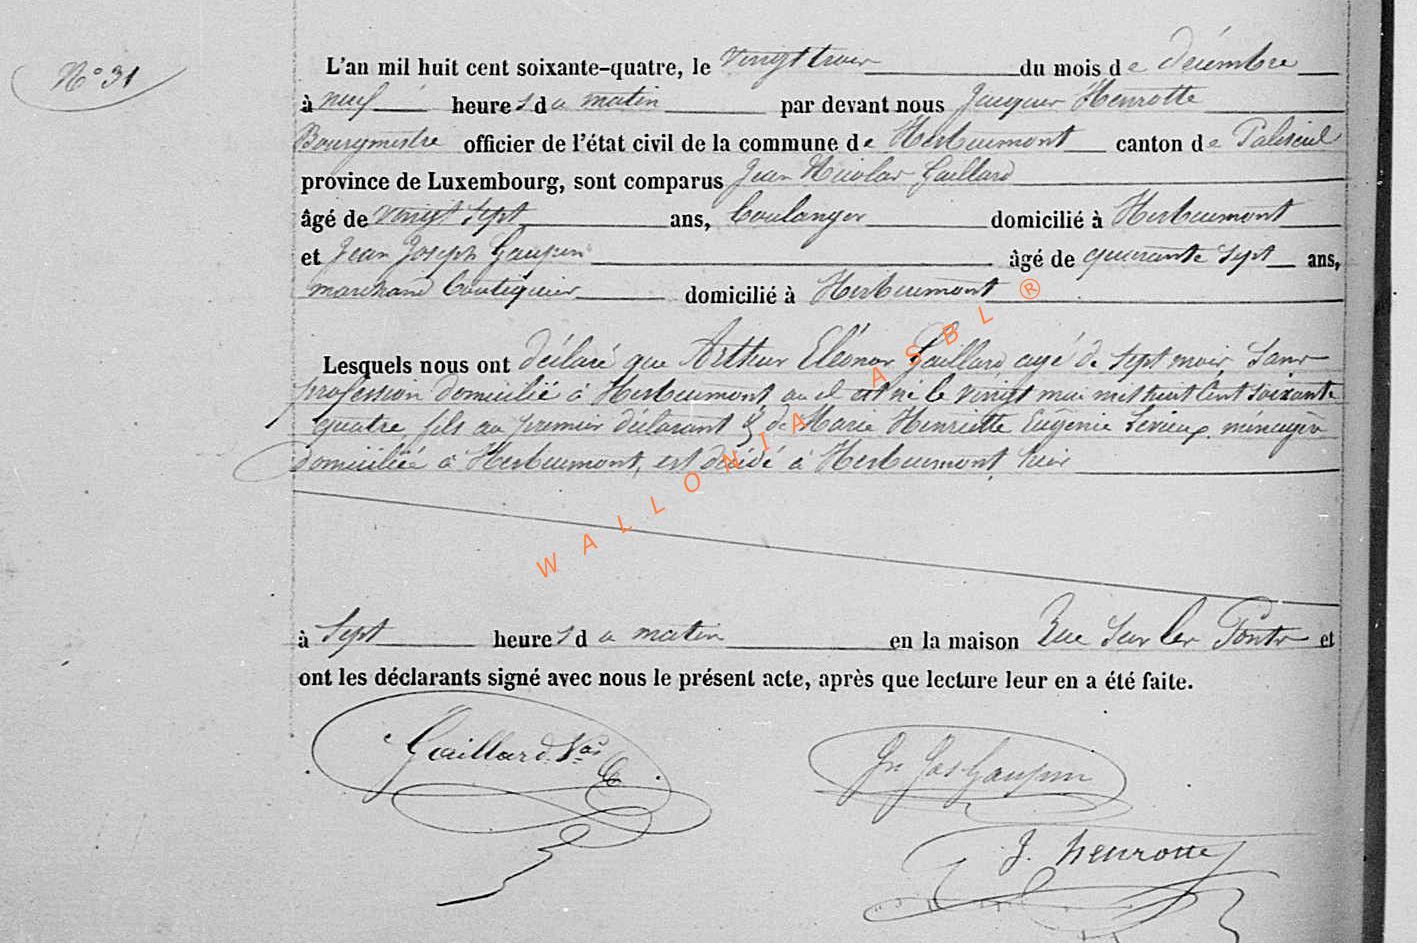 N° 31
L'an mil huit cent soixante-quatre, le vingt trois du mois de décembre
à neuf heures du matin par devant nous Jacques Henrotte
Bourgmestre officier de l'état civil de la commune de Herbeumont canton de Paliseul
province de Luxembourg, sont comparus Jean Nicolas Gaillard
âgé de vingt sept ans, boulanger domicilié à Herbeumont
et Jean Joseph Gaupin âgé de quarante sept ans,
marchand boutiquier domicilié à Herbeumont
Lesquels nous ont déclaré que Arthur Eléonor Gaillard agé de sept mois, sans
profession domicilié à Herbeumont où il est né le vingt mai mil huit cent soixante
quatre fils du premier déclarant & de Marie Henriette Eugénie Lévieux ménagère
domiciliée à Herbeumont, est décédé à Herbeumont, hier
à sept heures du matin en la maison Rue sur les Ponts et
ont les déclarants signé avec nous le présent acte, après que lecture leur en a été faite.
Gaillard Nas
Jn Jos Gaupin
J. Henrotte
WALLONIA ASBL ®